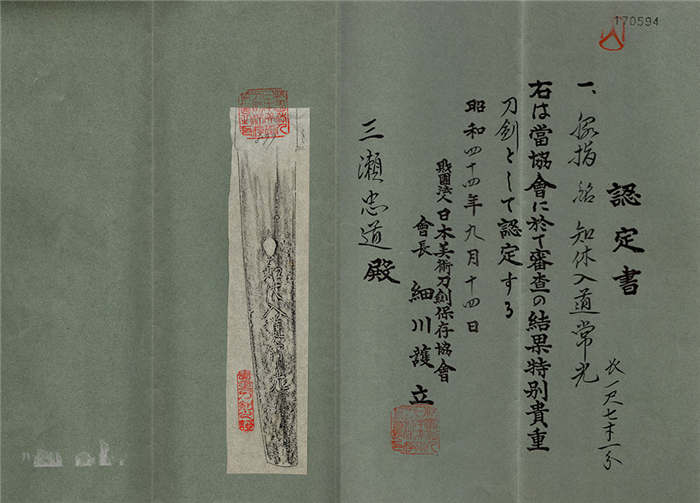 170594
認定書
一、脇指 銘 知休入道常光
長一尺七寸一分
右は當協會に於て審査の結果特別貴重
刀劍として認定する
昭和四十四年九月十四日
財團法人日本美術刀劍保存協會
會長 細川護立
三瀬忠道殿